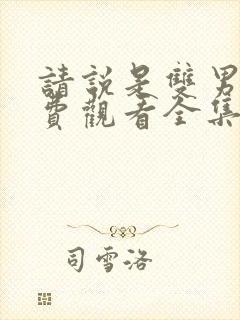 請說是雙男
費觀看全集
司雪洛